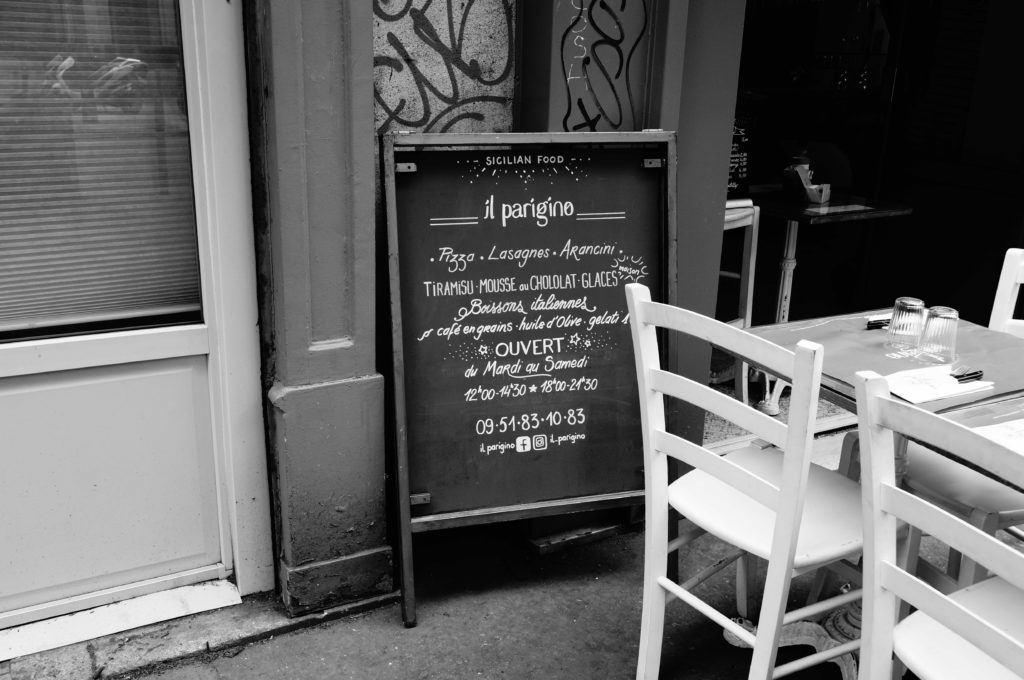 SICILIAN FOOD
il parigino
• Pizza • Lasagnes • Arancini •
TIRAMISU • MOUSSE au CHOLOLAT • GLACES maison
Boissons italiennes
café en grains • huile d'Olive • gelati
OUVERT
du Mardi au Samedi
12h00-14h30 ★ 18h00-21h30
09•51•83•10•83
il parigino il_parigino